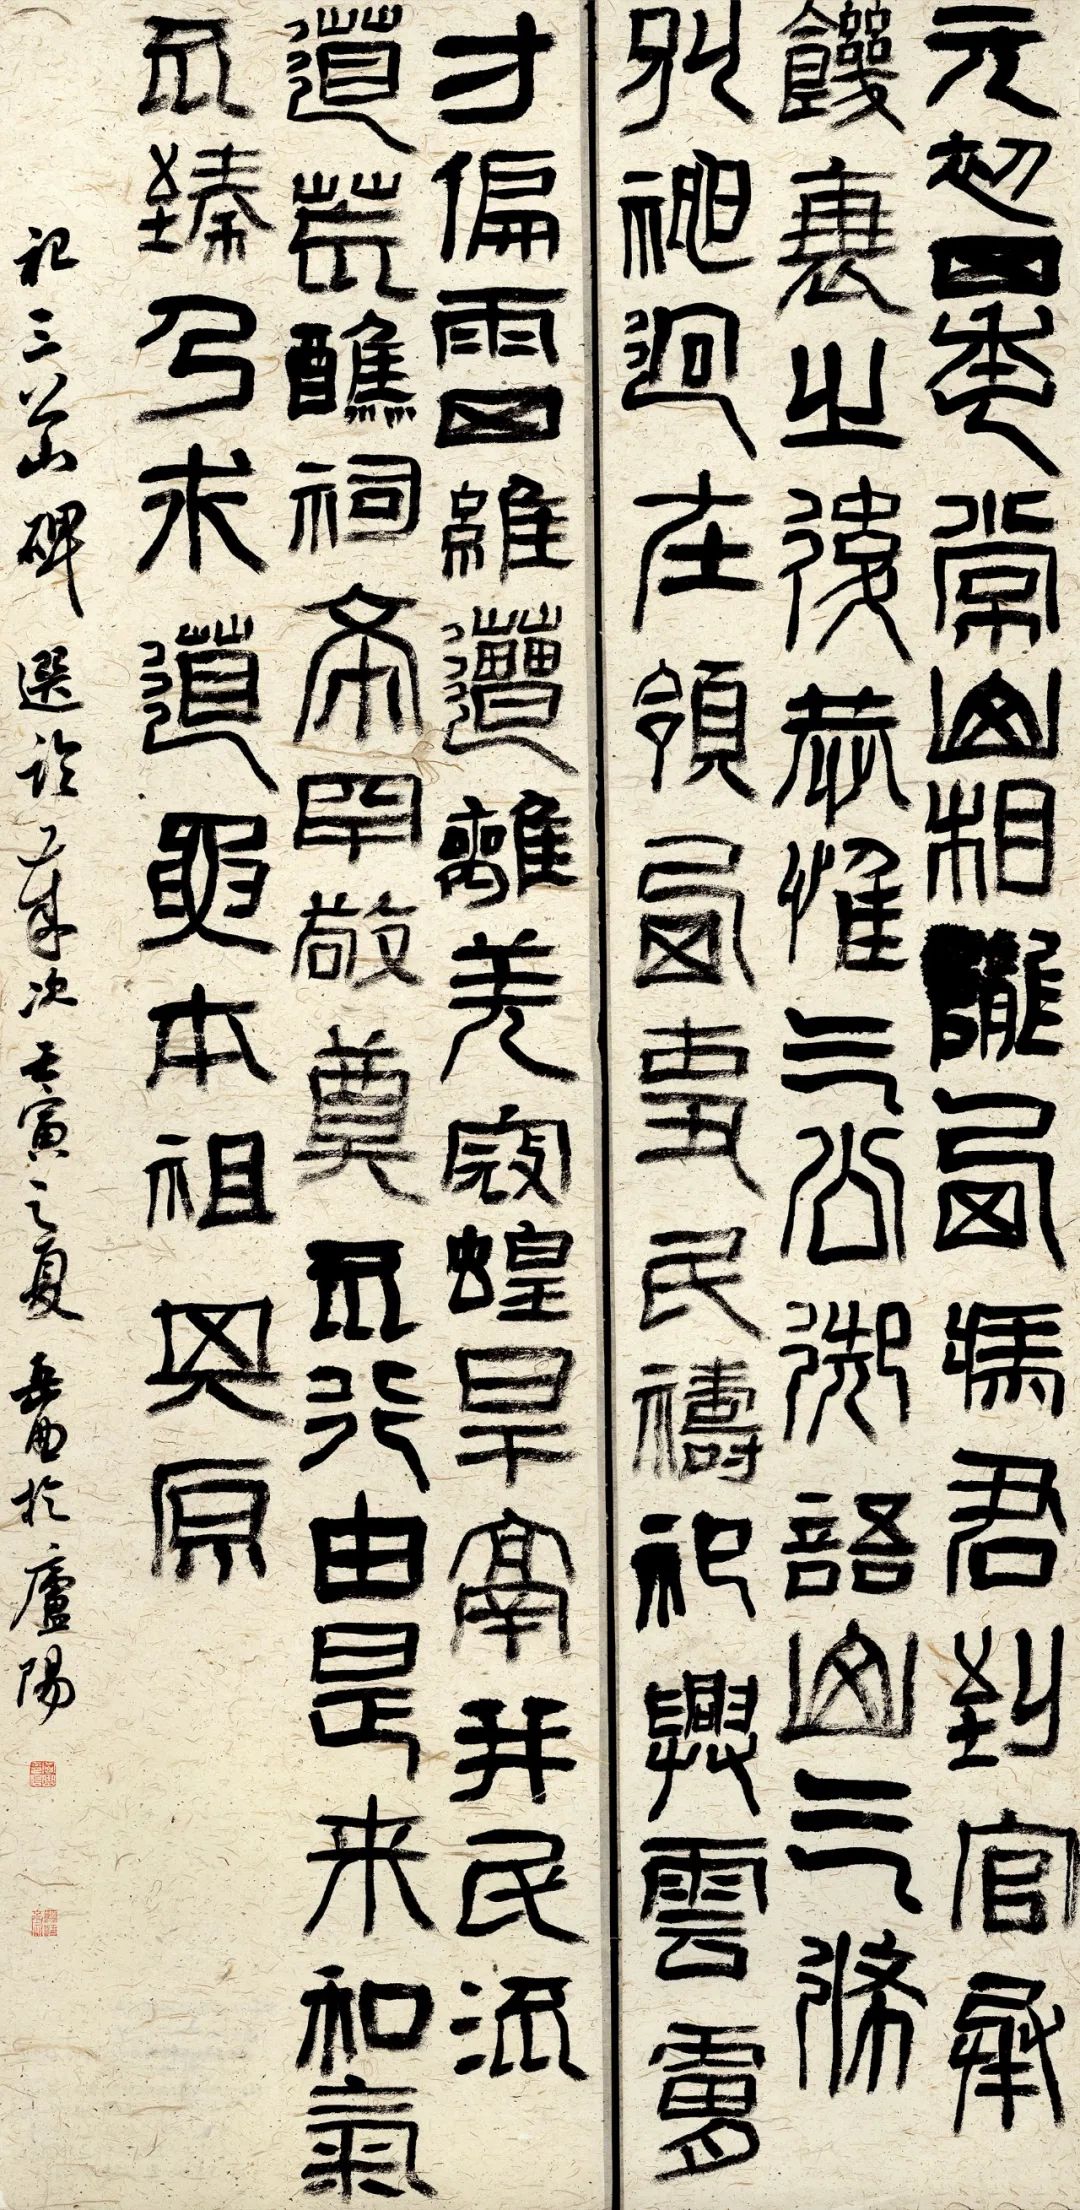 元初四年常山相隴西馮君到官承
饑衰之後恭惟三公御語山三條
別神迥在領西吏民禱祀興雲膚
寸偏雨四維遭離羌寇蝗旱鬲并民流
道荒醮祠希罕敬奠不行由是来和氣
不臻乃求道要本祖其原
祀三公山碑 選臨 歲次壬寅之夏 於廬陽